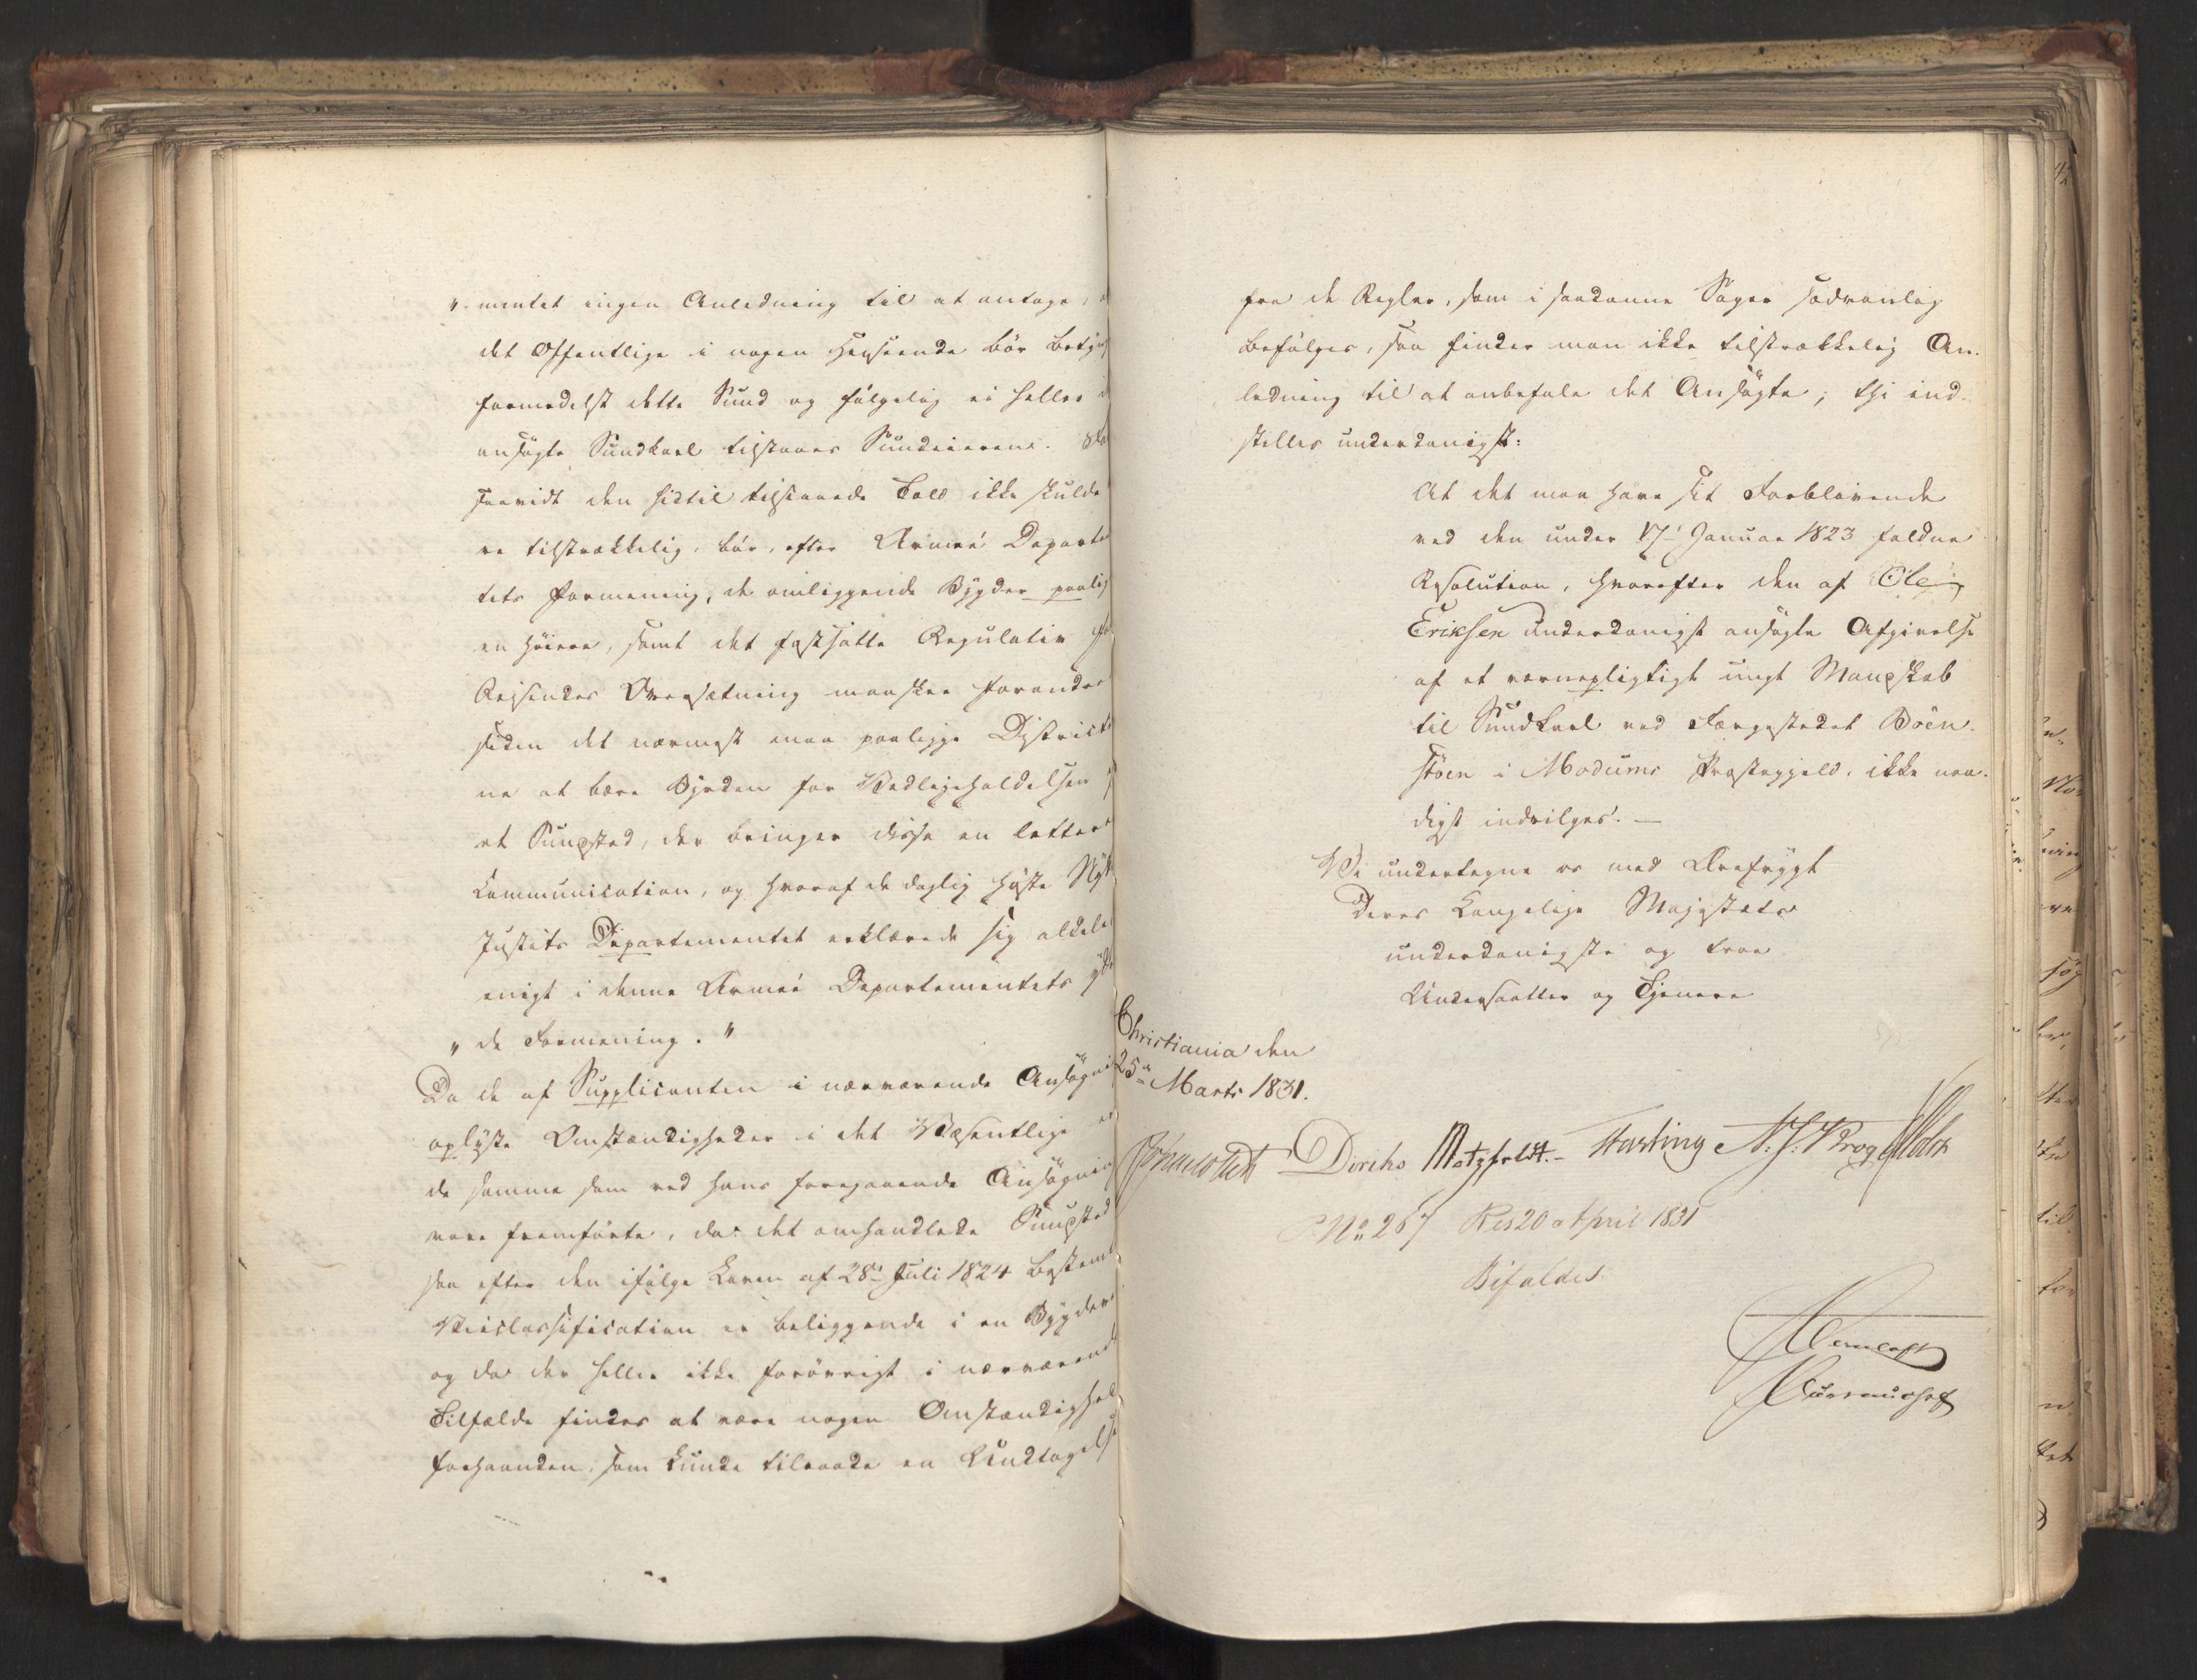 "mentet ingen Anledning til at antage,
det Offentlige i nogen Henseende bör
formedelst dette Sund og fölgelig ei heller
ansögte Sundkarl tilstaaes Sundeierene.
saavidt den hidtil tilstaaede Told ikke skulde
re tilstrækkelig, bör, efter Armee Departe
tets Formening, de omliggende Bygder
en höiere, samt det fastsatte Regulativ
Reisendes Oversætning maaskee forandres
siden det nærmest maa paaligge Districte
ne at bære Byrden for Vedligeholdelsen
et Sundsted, der bringer disse en lettere
Communication, og hvoraf de daglig høste Nytte
Justits Departementet erklærede sig aldeles
enigt i denne Armeé Departementets
"de Formening."
Da de af Supplicanten i nærværende Ansögni
oplyste Omstændigheder i det Væsentlige er
de samme som ved hans foregaaende Ansögning
vare fremförte, da det omhandlede Sundsted
saa efter den ifölge Loven af 28de Juli 1824 bestemt
Veiclassification er beliggende i en Bygdevei
og da der heller ikke forövrigt i nærværende
Tilfælde findes at være nogen Omstændighed
forhaanden, som kunde tilraade en Undtagelse
fra de Regler, som i saadanne Sager sædvanlig
befölges, saa finder man ikke tilstrækkelig An-
ledning til at anbefale det Ansögte; thi ind-
stilles underdanigst:
At det maa have sit Forblivende
ved den under 17de Januar 1823 faldne
Resolution, hvorefter den af Ole
Eriksen underdanigst ansögte Afgivelse
af et værnepligtigt ungt Mandskab
til Sundkarl ved Færgestedet Böen-
stöen i Modums Præstegjeld, ikke naa-
digst indvilges. —
Vi undertegne os med Ærefrygt
Deres Kongelige Majestæts
underdanigste og troe
Undersaatter og Tjenere
Christiania den
25de Marts 1831.
Diriks Motzfeldt. Fasting Holst
No 267 Res 20 April 1831
Bifaldes